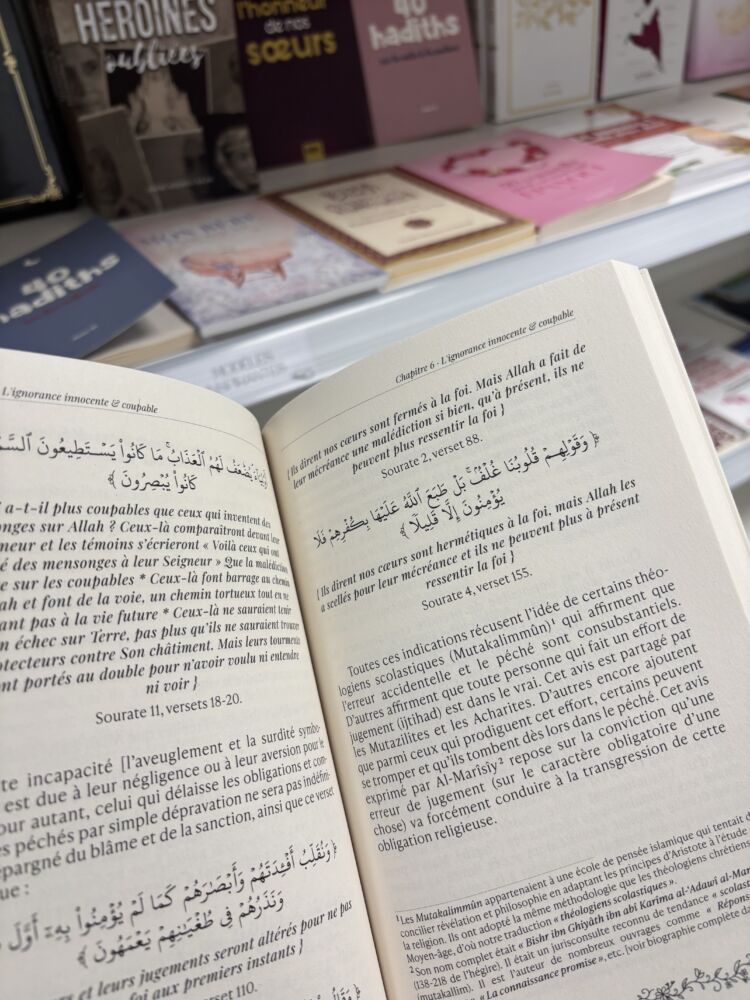 HÉROÏNES
oubliées
l'honneur
de nos
sœurs
40
hadiths
40
hadiths
L'ignorance innocente & coupable
لَهُمُ ٱلْعَذَابُ ۚ مَا كَانُوا۟ يَسْتَطِيعُونَ
كَانُوا۟ يُبْصِرُونَ ﴾
a-t-il plus coupables que ceux qui inventent des
onges sur Allah ? Ceux-là comparaîtront devant leur
neur et les témoins s'écrieront « Voilà ceux qui ont
é des mensonges à leur Seigneur » Que la malédiction
e sur les coupables * Ceux-là font barrage au chemin
ah et font de la voie, un chemin tortueux tout en ne
ant pas à la vie future * Ceux-là ne sauraient tenir
n échec sur Terre, pas plus qu'ils ne sauraient trouver
otecteurs contre Son châtiment. Mais leurs tourments
ont portés au double pour n'avoir voulu ni entendre
ni voir }
Sourate 11, versets 18-20.
te incapacité [l'aveuglement et la surdité symbo-
est due à leur négligence ou à leur aversion pour le
our autant, celui qui délaisse les obligations et com-
es péchés par simple dépravation ne sera pas indéfini-
épargné du blâme et de la sanction, ainsi que ce verset
que :
﴿ وَنُقَلِّبُ أَفْـِٔدَتَهُمْ وَأَبْصَـٰرَهُمْ كَمَا لَمْ يُؤْمِنُوا۟ بِهِۦٓ أَوَّلَ
وَنَذَرُهُمْ فِى طُغْيَـٰنِهِمْ يَعْمَهُونَ ﴾
rs et leurs jugements seront altérés pour ne pas
foi aux premiers instants }
110.
Chapitre 6 - L'ignorance innocente & coupable
{ Ils dirent nos cœurs sont fermés à la foi. Mais Allah a fait de
leur mécréance une malédiction si bien, qu'à présent, ils ne
peuvent plus ressentir la foi }
Sourate 2, verset 88.
﴿ وَقَوْلِهِمْ قُلُوبُنَا غُلْفٌۢ ۚ بَلْ طَبَعَ ٱللَّهُ عَلَيْهَا بِكُفْرِهِمْ فَلَا
يُؤْمِنُونَ إِلَّا قَلِيلًا ﴾
{ Ils dirent nos cœurs sont hermétiques à la foi. mais Allah les
a scellés pour leur mécréance et ils ne peuvent plus à présent
ressentir la foi }
Sourate 4, verset 155.
Toutes ces indications récusent l'idée de certains théo-
logiens scolastiques (Mutakalimmûn)¹ qui affirment que
l'erreur accidentelle et le péché sont consubstantiels.
D'autres affirment que toute personne qui fait un effort de
jugement (ijtihad) est dans le vrai. Cet avis est partagé par
les Mutazilites et les Acharites. D'autres encore ajoutent
que parmi ceux qui prodiguent cet effort, certains peuvent
se tromper et qu'ils tombent dès lors dans le péché. Cet avis
exprimé par Al-Marîsîy² repose sur la conviction qu'une
erreur de jugement (sur le caractère obligatoire d'une
chose) va forcément conduire à la transgression de cette
obligation religieuse.
¹Les Mutakalimmûn appartenaient à une école de pensée islamique qui tentait d
concilier révélation et philosophie en adaptant les principes d'Aristote à l'étude
la religion. Ils ont adopté la même méthodologie que les théologiens chrétiens
Moyen-âge, d'où notre traduction « théologiens scolastiques ».
² Son nom complet était « Bishr ibn Ghiyâth ibn abi Karima al-'Adawi al-Mar
(138-218 de l'hégire). Il était un jurisconsulte reconnu de tendance « scolas
(mutakallim). Il est l'auteur de nombreux ouvrages comme « Répons
« La connaissance promise », etc. [voir biographie complète da